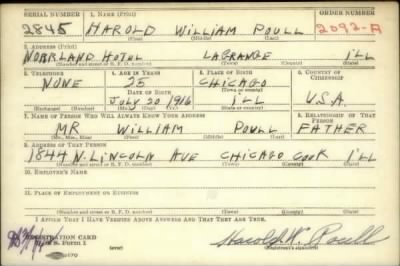 SERIAL NUMBER 1. NAME (Print) ORDER NUMBER
2845 HAROLD WILLIAM POULL 2092-A
(First) (Middle) (Last)
2. ADDRESS (Print)
HOTEL LAGRANGE ILL
(Number and street or R. F. D. number) (Town) (County) (State)
3. TELEPHONE 4. AGE IN YEARS 5. PLACE OF BIRTH 6. COUNTRY OF CITIZENSHIP
NONE 25 CHICAGO
DATE OF BIRTH (Town or county)
JULY 20 1916 ILL U.S.A.
(Exchange) (Number) (Mo.) (Day) (Yr.) (State or country)
7. NAME OF PERSON WHO WILL ALWAYS KNOW YOUR ADDRESS 8. RELATIONSHIP OF THAT PERSON
MR WILLIAM POULL FATHER
(Mr., Mrs., Miss) (First) (Middle) (Last)
9. ADDRESS OF THAT PERSON
1844 N. LINCOLN AVE CHICAGO COOK ILL
(Number and street or R. F. D. number) (Town) (County) (State)
10. EMPLOYER'S NAME
11. PLACE OF EMPLOYMENT OR BUSINESS
(Number and street or R. F. D. number) (Town) (County) (State)
I AFFIRM THAT I HAVE VERIFIED ABOVE ANSWERS AND THAT THEY ARE TRUE.
REGISTRATION CARD
Form 1 Harold W. Poull
(Registrant's signature)